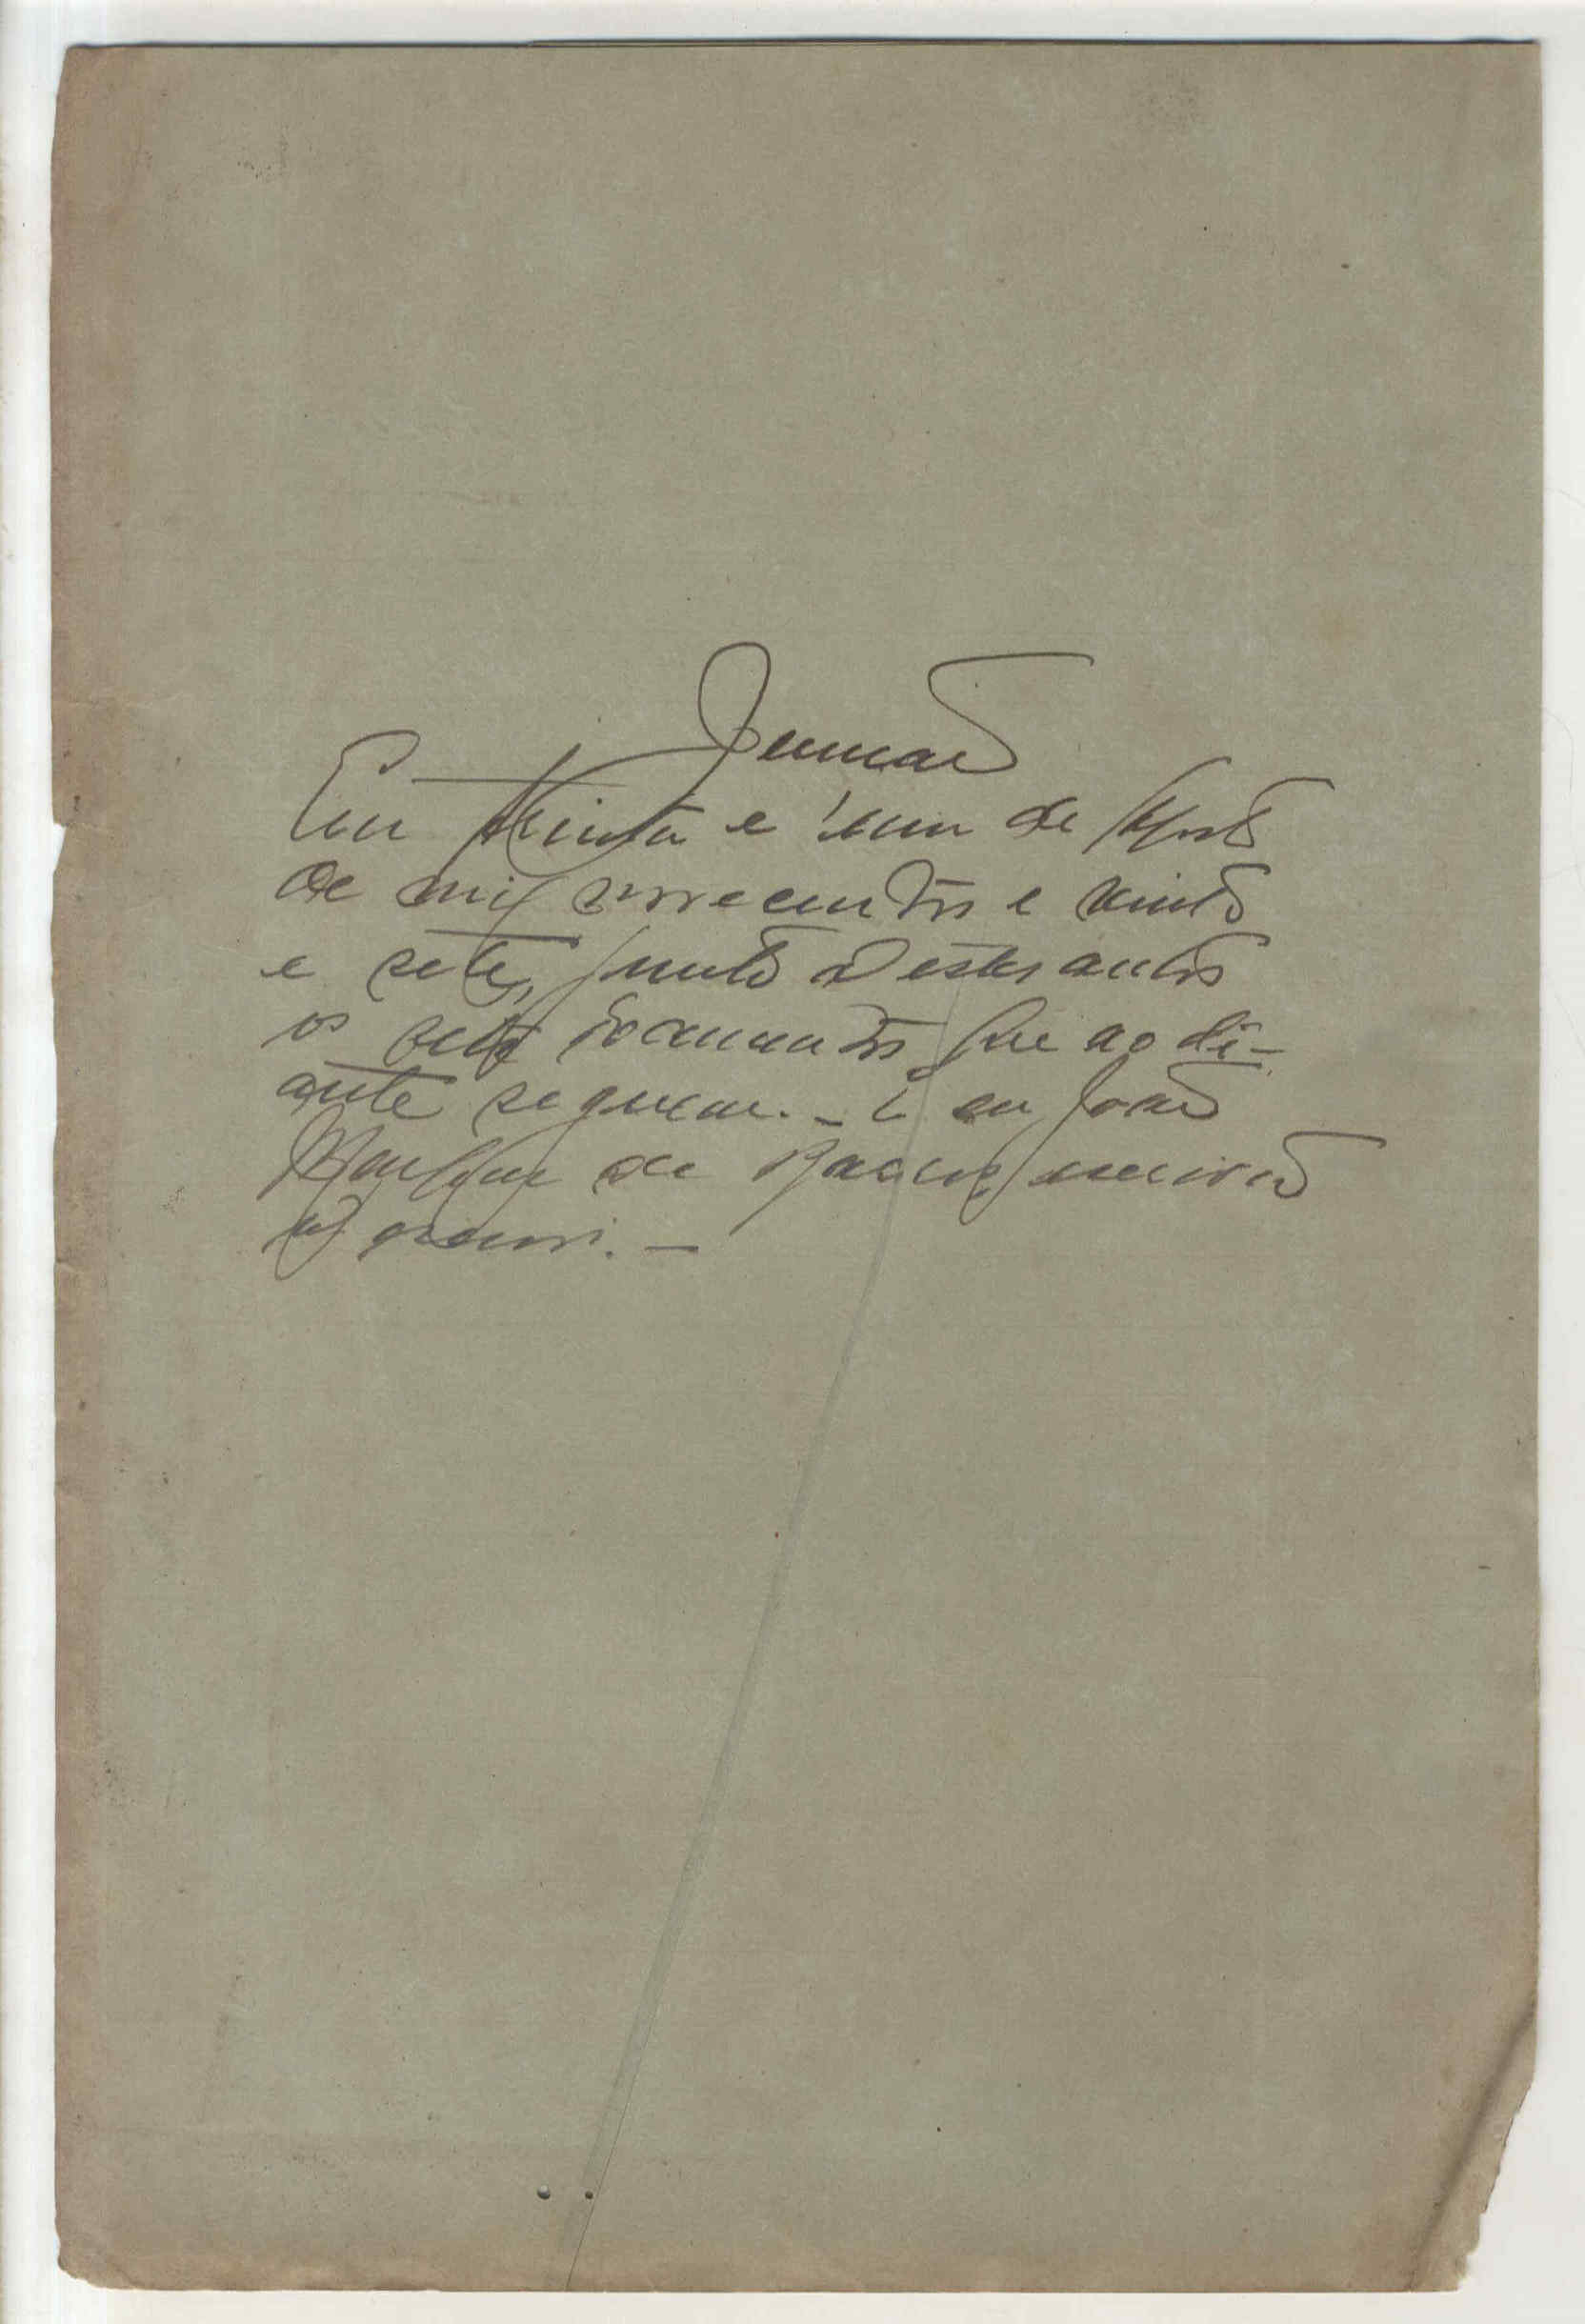 Juncao
Em trinta e um de Agosto
de mil novecentos e vinte
e sete, junto a estes autos
os sete documentos que ao di-
ante seguem. - E eu João
de escrivão
o escrevi. -